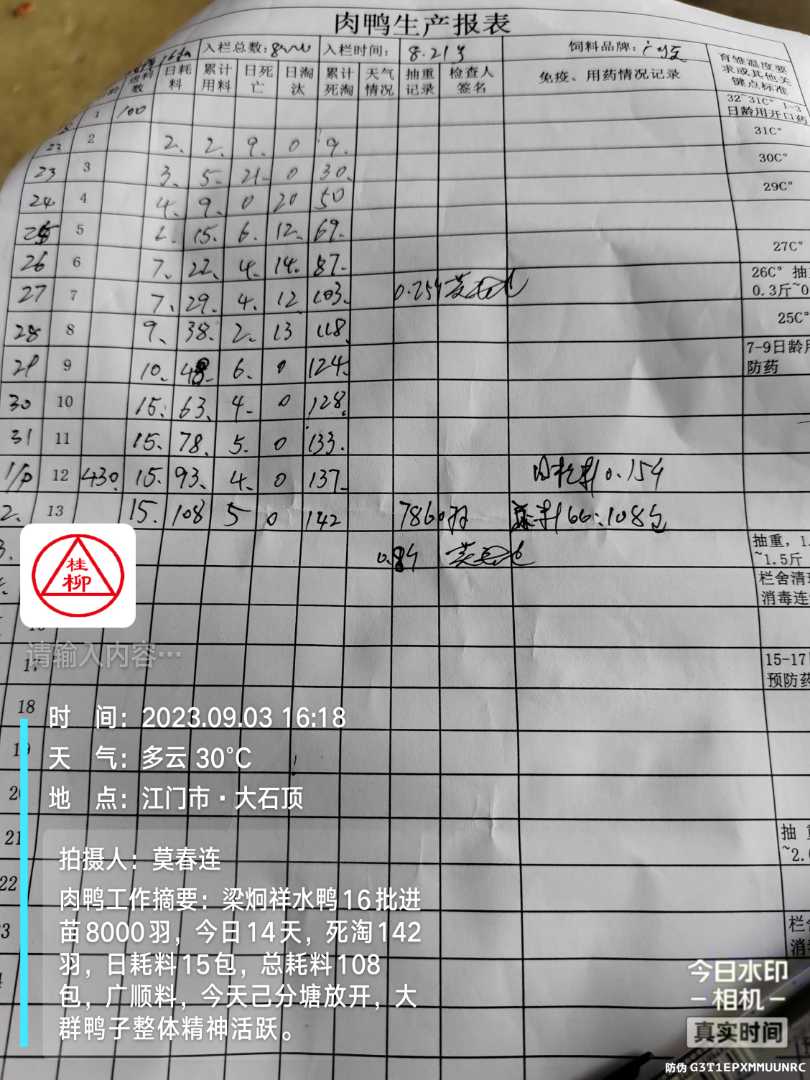 肉鸭生产报表
入栏总数: 8000 入栏时间: 8.21号 饲料品牌:
日耗料 累计用料 日死亡 日淘汰 累计死淘 天气情况 抽重记录 检查人签名 免疫、用药情况记录 育雏温度要求或其他关键点标准
1 100 32~31C° 1-3日龄用开口药
22 2 2 2 9 0 9 31C°
23 3 3 5 21 0 30 30C°
24 4 4 9 0 20 50 29C°
25 5 6 15 6 12 69
27C°
26 6 7 22 4 14 87 26C° 抽
27 7 7 29 4 12 103 0.25斤 莫春连 0.3斤~0
28 8 9 38 2 13 118 25C°
29 9 10 48 6 0 124 7-9日龄用防药
30 10 15 63 4 0 128
31 11 15 78 5 0 133
1/9 12 430 15 93 4 0 137 日耗料0.15斤
2 13 15 108 5 0 142 7860羽 166:108包
3 0.8斤 莫春连 抽重，1.
~1.5斤
栏舍清
消毒连
桂柳
请输入内容…
17 15-17
预防药
18
时 间：2023.09.03 16:18
天 气：多云 30℃
地 点：江门市·大石顶
21 抽重
~2.
22
拍摄人：莫春连
肉鸭工作摘要：梁炯祥水鸭16批进
苗8000羽，今日14天，死淘142
羽，日耗料15包，总耗料108
包，广顺料，今天己分塘放开，大
群鸭子整体精神活跃。
栏舍
消
今日水印
相机
真实时间
防伪 G3T1EPXMMUUNRC